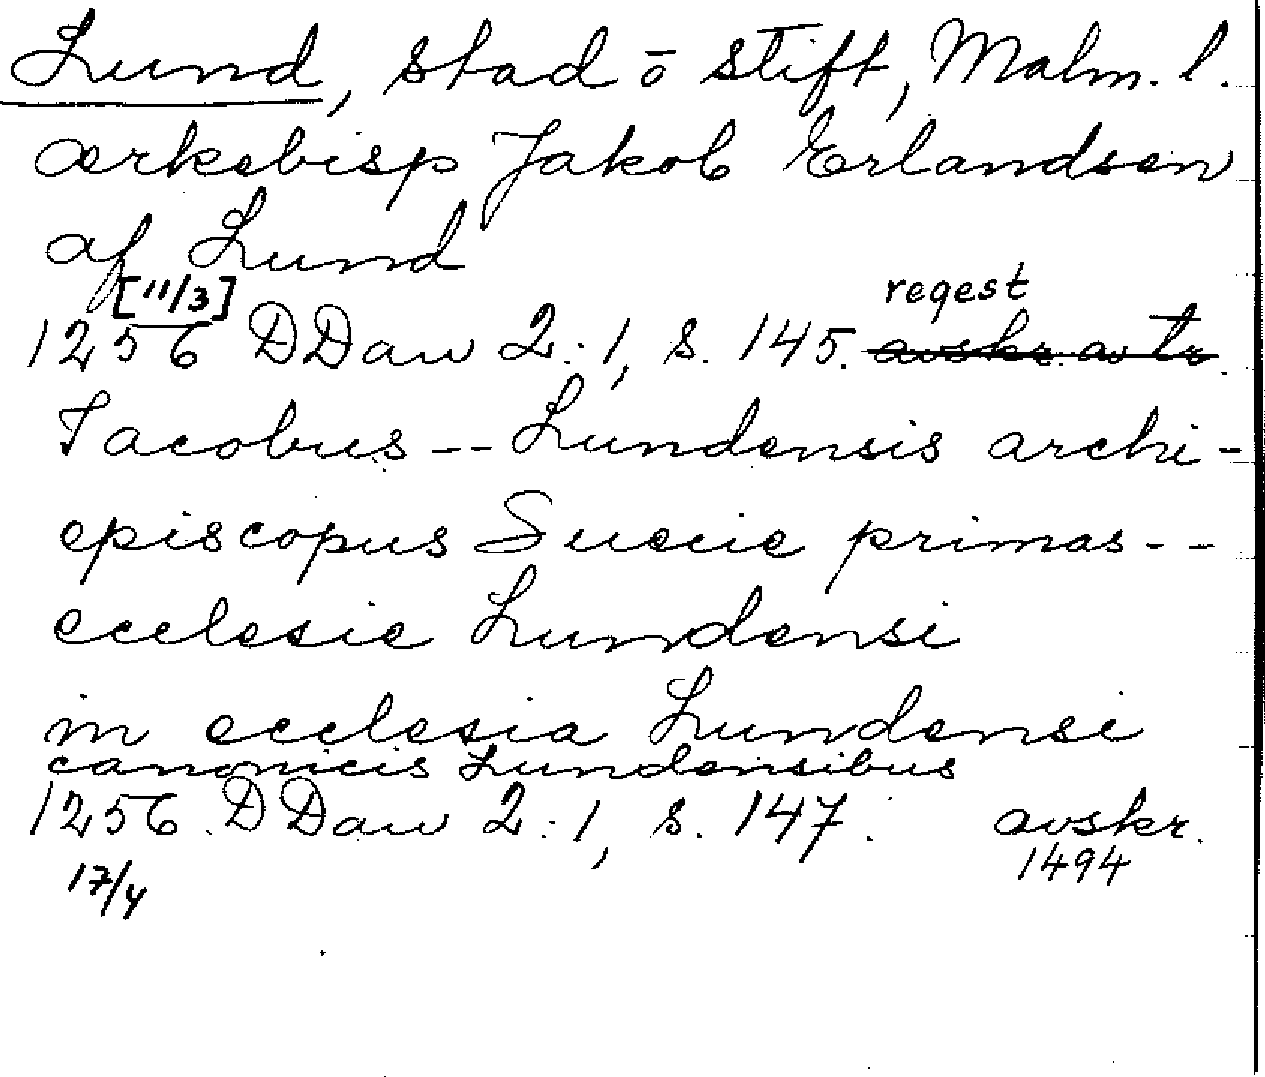 Lund, stad o stift, Malm. l.
ærkebisp Jakob Erlandsen
af Lund
[11/3]
regest
1256 DDan 2:1, s. 145. avskr. av tr.
Jacobus -- Lundensis archi-
episcopus Suecie primas --
ecclesie Lundensi
in ecclesia Lundensi
canonicis Lundensibus
1256. DDan 2:1, s. 147. avskr.
17/4 1494